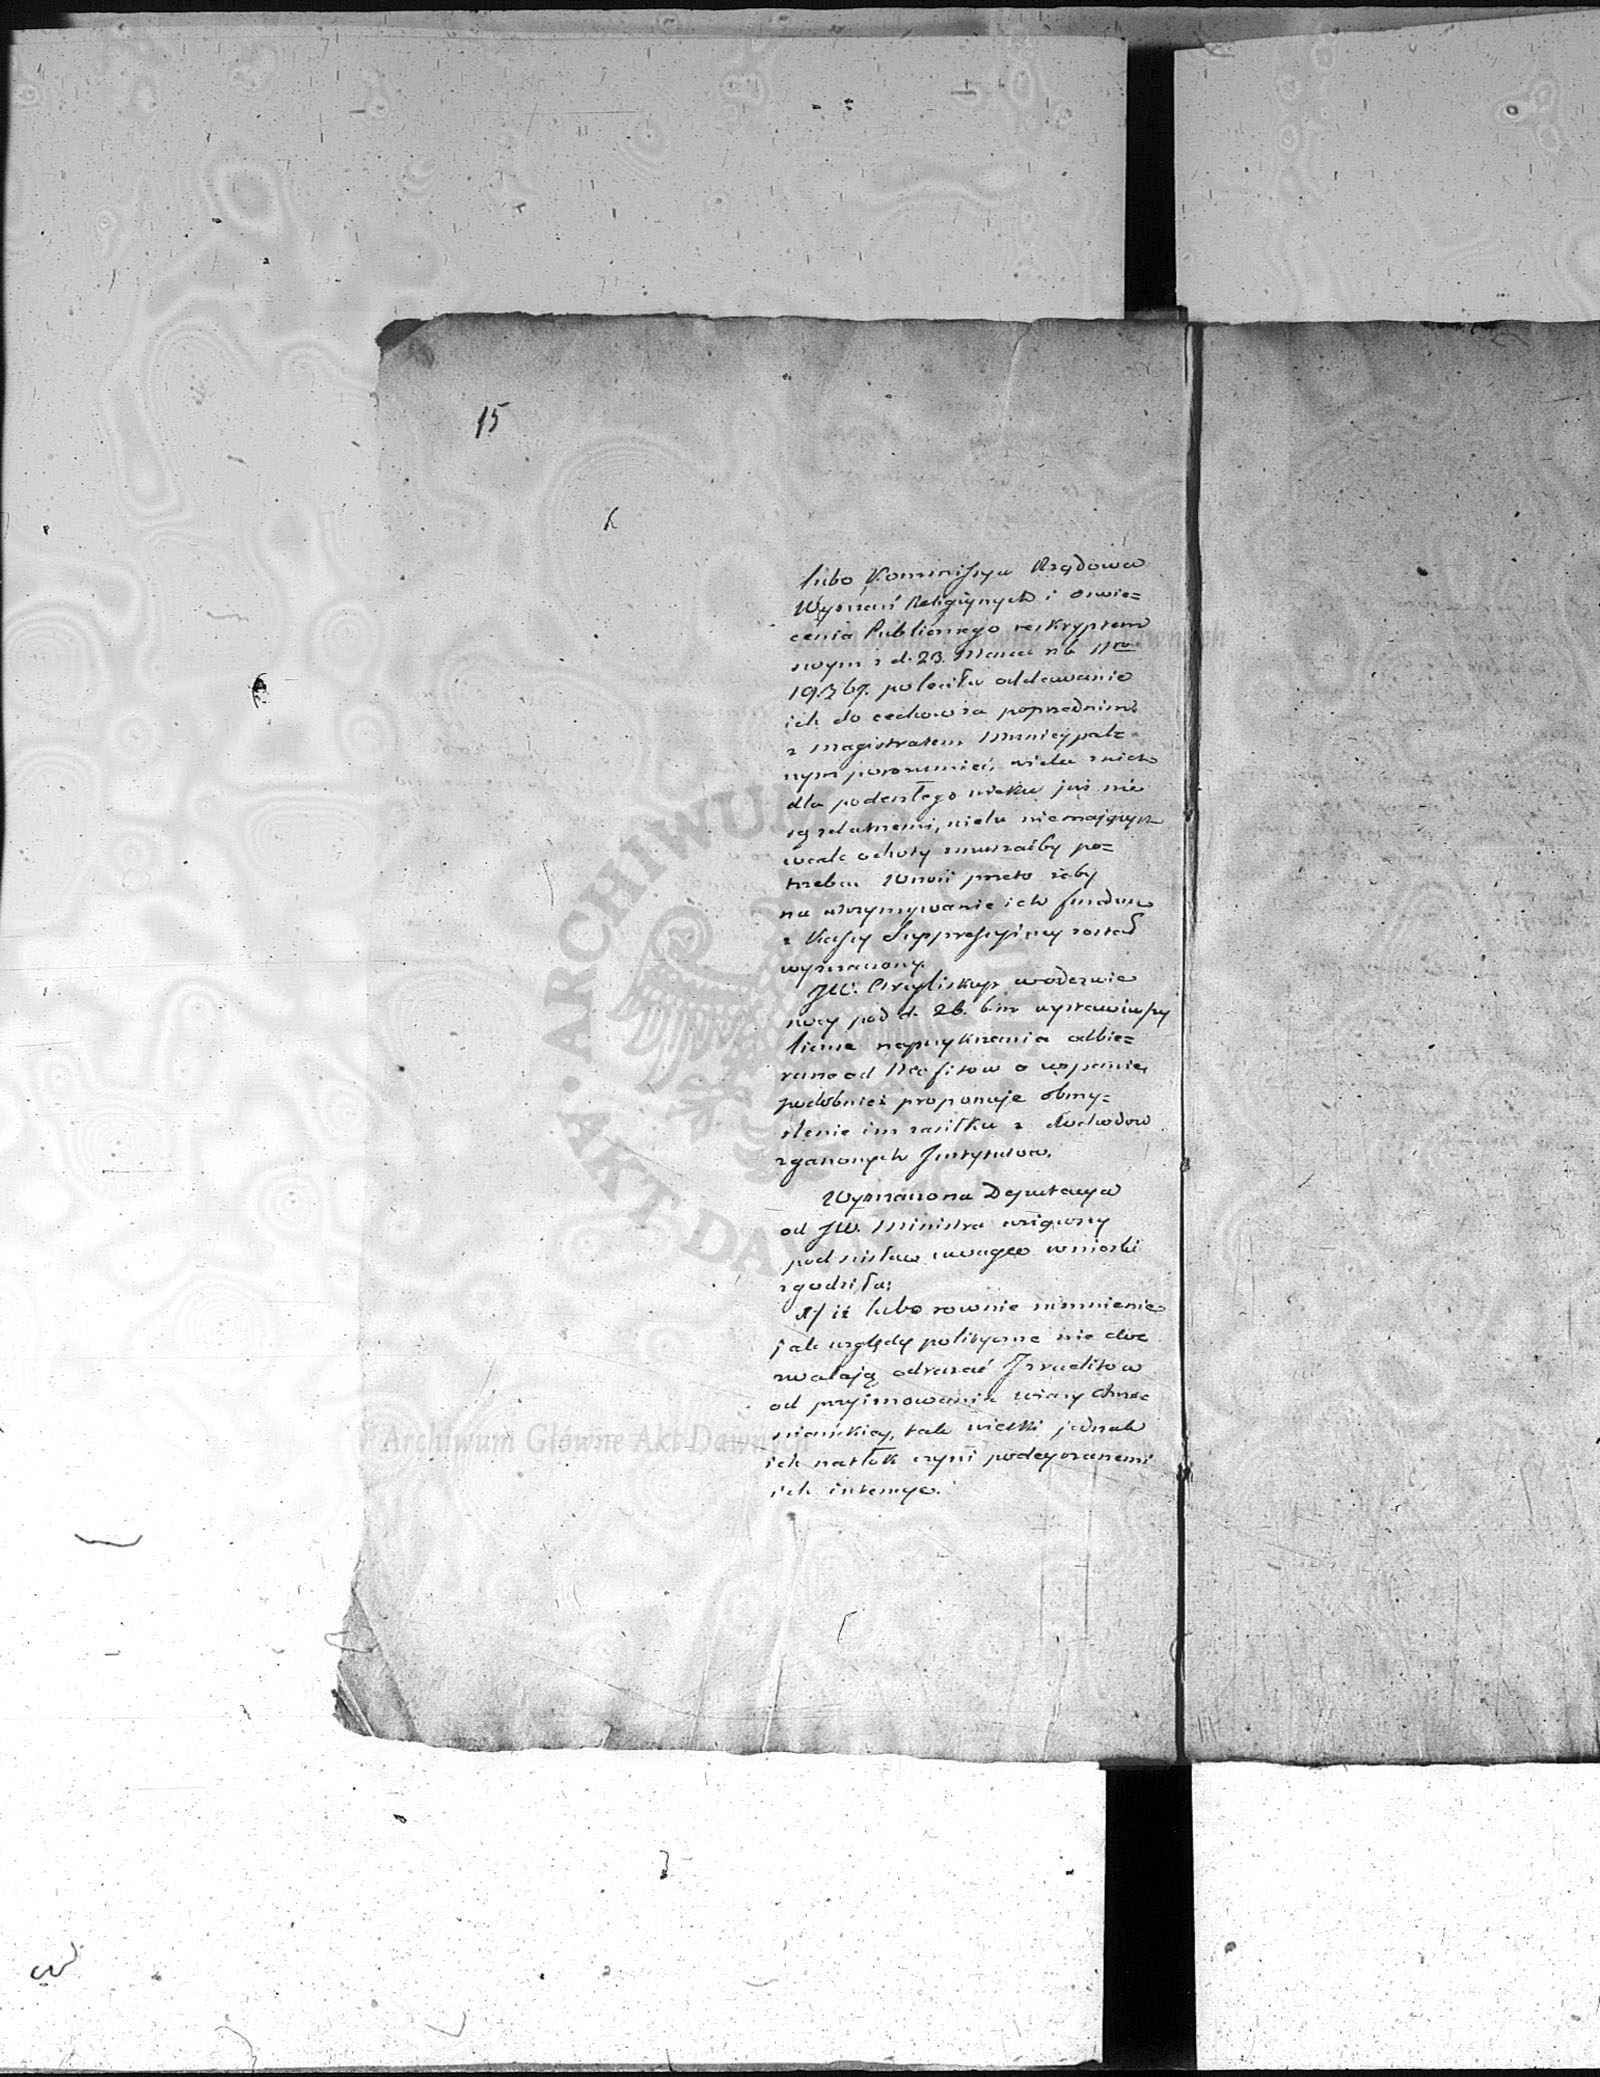 15
lubo Kommissya Rządowa
Wyznań Religiynych i Oswie=
cenia Publicznego reskryptem
swym z d. 23. Marca rb Nro
19.367. poleciła oddawanie
ich do cechow za poprzednim
z Magistratem Municypal=
nym porozumień, wielu z nich
dla podeszłego wieku już nie
są zdatnemi, wielu niemających
wcale ochoty zmuszaćby po=
trzeba. Wnosi przeto żeby
na utrzymywanie ich fundusz
z Kassy Suppressyiney został
wyznaczony.
JW. Arcybiskup w odezwie
swey pod d. 26. b.m wystawiwszy
liczne naprzykrzania odbie=
rane od Neofitow o wsparcie,
podobnież proponuje obmy=
slenie im zasiłku z dochodow
zgasonych Instytutow.
Wyznaczona Deputacya
od JW. Ministra wziąwszy
pod scisław uwagę wnioski
zgodziła:
1/ iż lubo rownie sumnienie
jak względy polityczne nie doz
zwalają odrażać Izraelitow
od przyimowania wiary Chrze
sciańskiey, tak wielki jednak
ich natłok czyni podeyrzanemi
ich intencye.
Archiwum Główne Akt Dawnych
ARCHIWUM GŁÓWNE AKT DAWNYCH